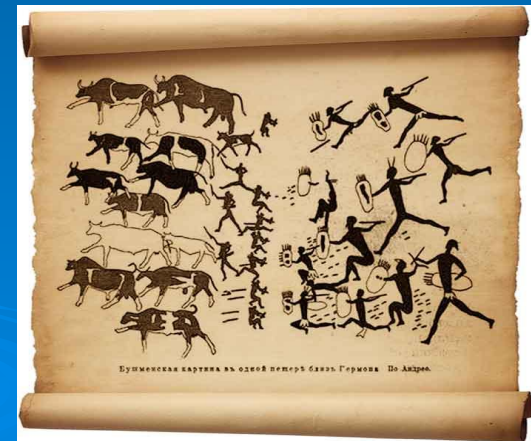 Бушменская картина въ одной пещерѣ близъ Гермона По Андрее.